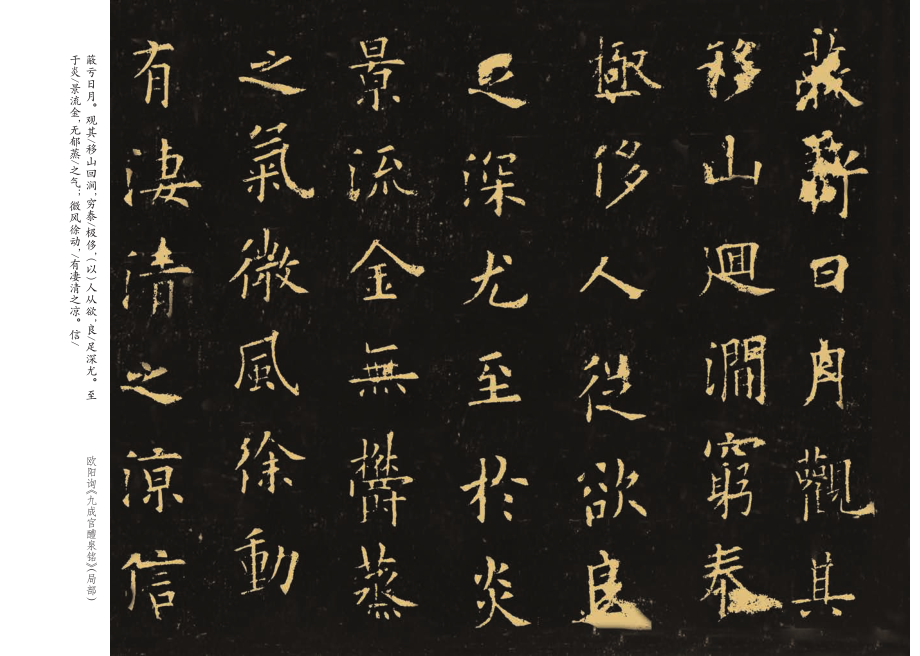 蔽虧日月觀其
移山迴澗窮泰
極侈人從欲良
足深尤至於炎
景流金無欝蒸
之氣微風徐動
有淒清之涼信
蔽亏日月。观其/移山回涧,穷泰/极侈,(以)人从欲,良/足深尤。至
于炎/景流金,无郁蒸/之气;微风徐动,/有凄清之凉。信/
欧阳询《九成宫醴泉铭》(局部)